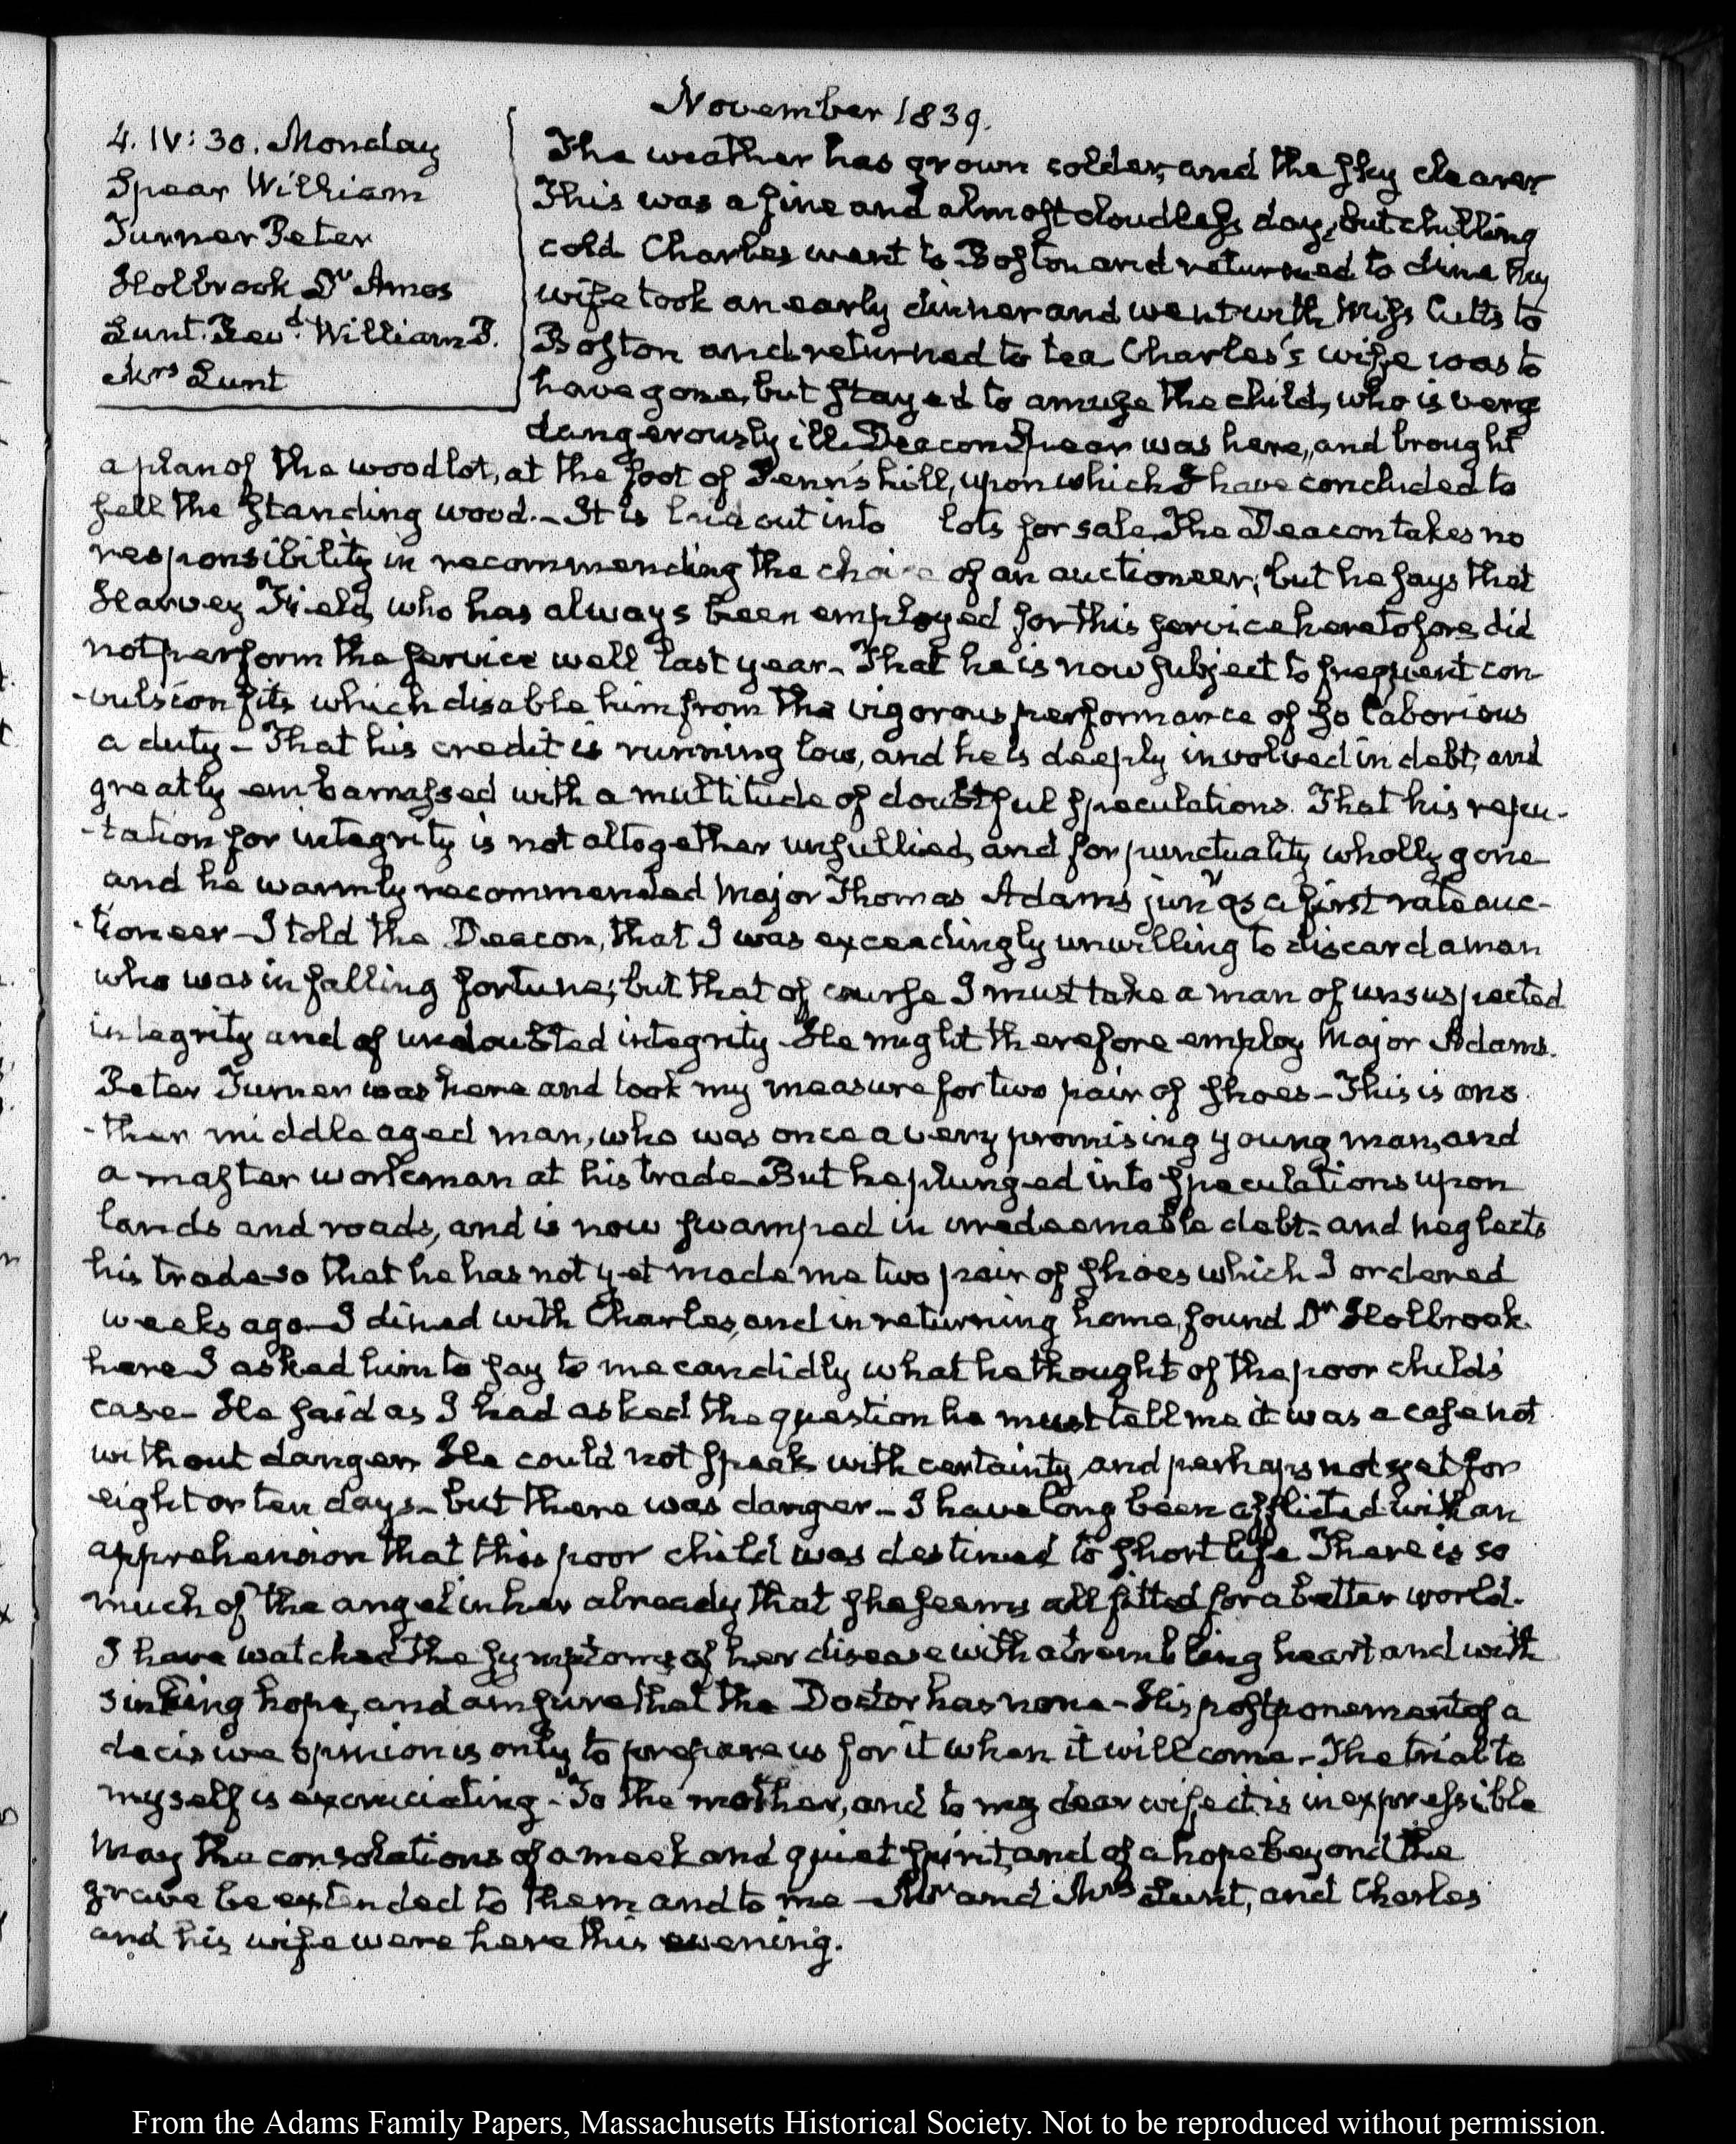 November 1839.
4. IV: 30. Monday
Spear William
Turner Peter
Holbrook Dr Amos
Lunt. Revd. William P.
Mrs Lunt
The weather has grown colder, and the sky clearer
This was a fine and almost cloudless day, but chilling
cold Charles went to Boston and returned to dine My
wife took an early dinner and went with Miss Cutts to
Boston and returned to tea Charles's wife was to
have gone, but stayed to amuse the child, who is very
dangerously ill. Deacon Spear was here, and brought
a plan of the woodlot, at the foot of Penn's hill, upon which I have concluded to
sell the standing wood. - It is laid out into lots for sale. The Deacon takes no
responsibility in recommending the choice of an auctioneer; but he says that
Harvey Field, who has always been employed for this service heretofore, did
not perform the service well last year - That he is now subject to frequent con-
-vulsion fits which disable him from the vigorous performance of so laborious
a duty - That his credit is running low, and he is deeply involved in debt, and
greatly embarrassed with a multitude of doubtful speculations. That his repu-
-tation for integrity is not altogether unsullied, and for punctuality wholly gone
and he warmly recommended Major Thomas Adams junr as a first rate auc-
-tioneer - I told the Deacon, that I was exceedingly unwilling to discard a man
who was in falling fortune; but that of course I must take a man of unsuspected
integrity and of undoubted integrity - He might therefore employ Major Adams.
Peter Turner was here and took my measure for two pair of shoes - This is ano
-ther middle aged man, who was once a very promising young man, and
a master workman at his trade - But he plunged into speculations upon
lands and roads, and is now swamped in irredeemable debt - and neglects
his trade - so that he has not yet made me two pair of shoes which I ordered
weeks ago - I dined with Charles, and in returning home, found Dr Holbrook
here I asked him to say to me candidly what he thought of the poor child's
case - He said as I had asked the question he must tell me it was a case not
without danger. He could not speak with certainty, and perhaps not yet for
eight or ten days - but there was danger - I have long been afflicted with an
apprehension that this poor child was destined to short life There is so
much of the angel in her already that she seems all fitted for a better world.
I have watched the symptoms of her disease with a trembling heart and with
sinking hope, and am sure that the Doctor has none - His postponement of a
decisive opinion is only to prepare us for it when it will come. - The trial to
myself is excruciating - To the mother, and to my dear wife it is inexpressible
May the consolations of a meek and quiet spirit, and of a hope beyond the
grave be extended to them and to me - Mr and Mrs Lunt, and Charles
and his wife were here this evening.
From the Adams Family Papers, Massachusetts Historical Society. Not to be reproduced without permission.